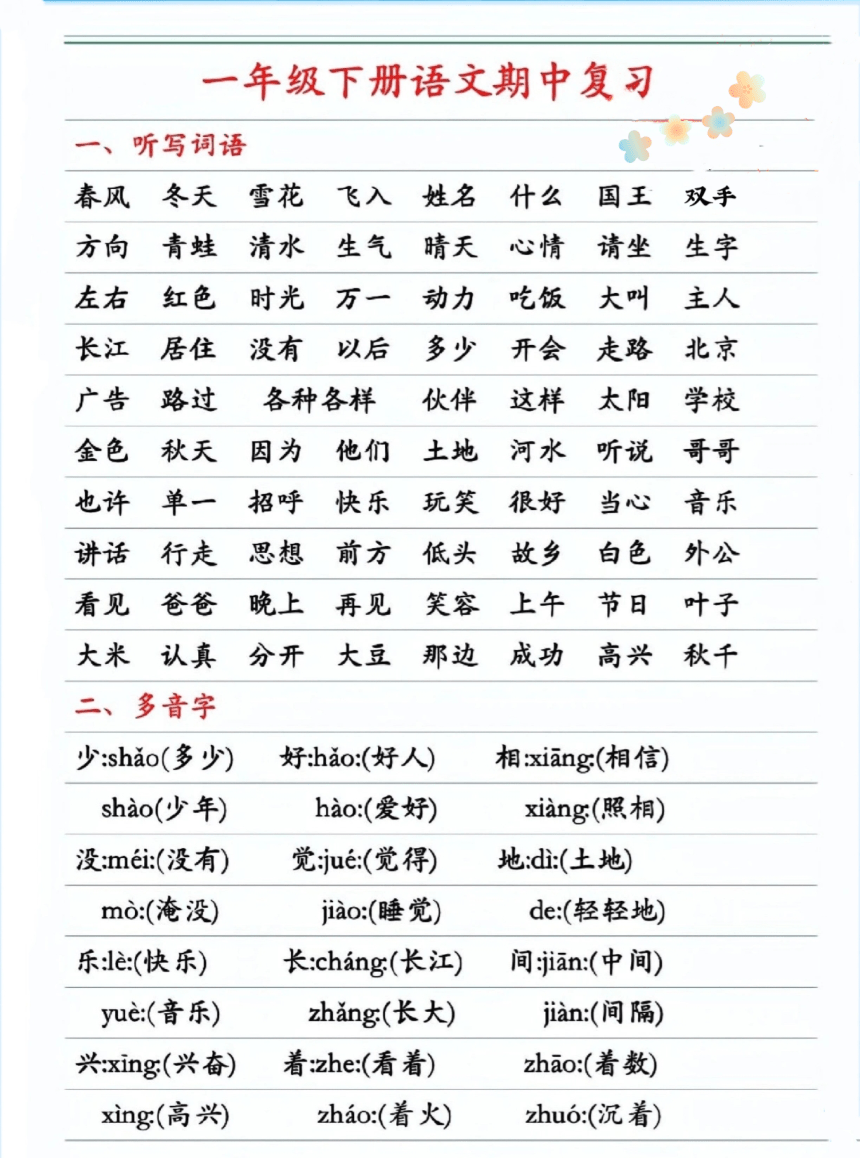 一年级下册语文期中复习
一、听写词语
春风 冬天 雪花 飞入 姓名 什么 国王 双手
方向 青蛙 清水 生气 晴天 心情 请坐 生字
左右 红色 时光 万一 动力 吃饭 大叫 主人
长江 居住 没有 以后 多少 开会 走路 北京
广告 路过 各种各样 伙伴 这样 太阳 学校
金色 秋天 因为 他们 土地 河水 听说 哥哥
也许 单一 招呼 快乐 玩笑 很好 当心 音乐
讲话 行走 思想 前方 低头 故乡 白色 外公
看见 爸爸 晚上 再见 笑容 上午 节日 叶子
大米 认真 分开 大豆 那边 成功 高兴 秋千
二、多音字
少:shǎo(多少) 好:hǎo:(好人) 相:xiāng:(相信)
shào(少年) hào:(爱好) xiàng:(照相)
没:méi:(没有) 觉:jué:(觉得) 地:dì:(土地)
mò:(淹没) jiào:(睡觉) de:(轻轻地)
乐:lè:(快乐) 长:cháng:(长江) 间:jiān:(中间)
yuè:(音乐) zhǎng:(长大) jiàn:(间隔)
兴:xīng:(兴奋) 着:zhe:(看着) zhāo:(着数)
xìng:(高兴) zháo:(着火) zhuó:(沉着)